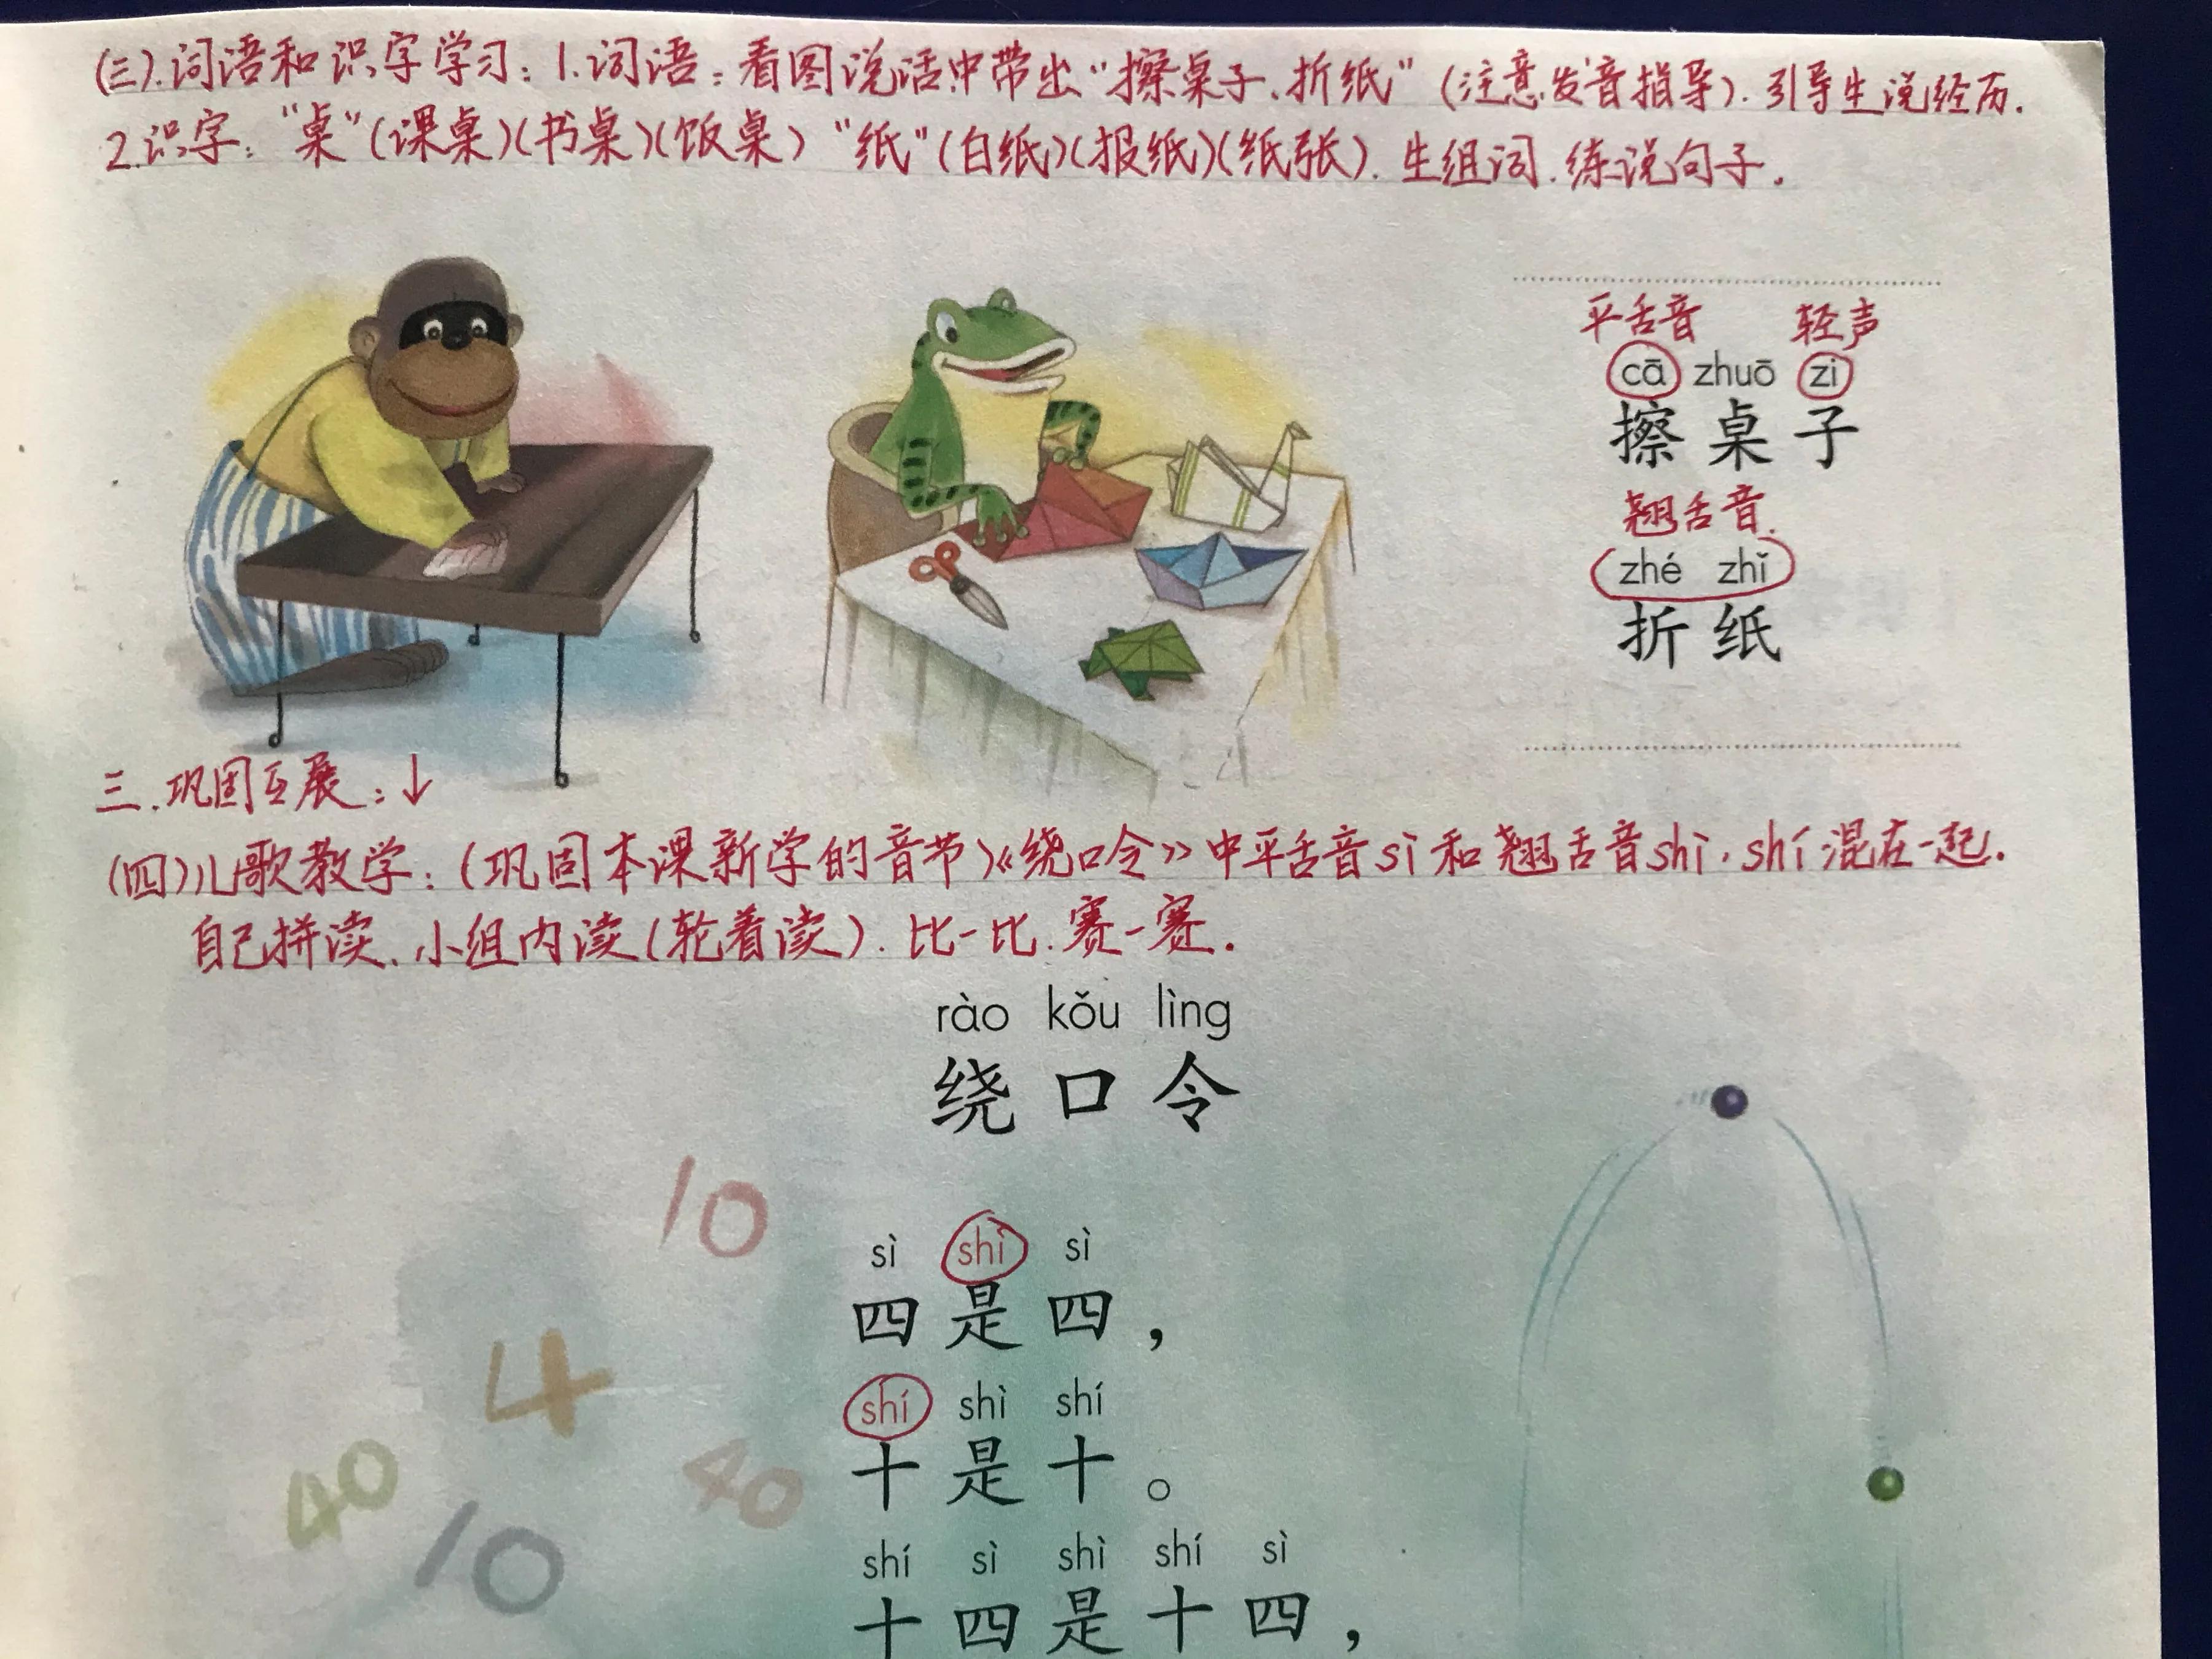 (三).词语和识字学习：1.词语：看图说话中带出“擦桌子、折纸”(注意发音指导).引导生说经历.
2.识字：“桌”(课桌)(书桌)(饭桌)“纸”(白纸)(报纸)(纸张).生组词.练说句子.
平舌音 轻声
cā zhuō zi
擦桌子
翘舌音.
zhé zhǐ
折纸
三.巩固互展：↓
(四)儿歌教学：(巩固本课新学的音节)《绕口令》中平舌音sì和翘舌音shì，shí混在一起.
自己拼读、小组内读(轮着读).比一比.赛一赛.
rào kǒu lìng
绕口令
10
sì shì sì
四是四，
4
shí shì shí
十是十。
40
40
10
shí sì shì shí sì
十四是十四，